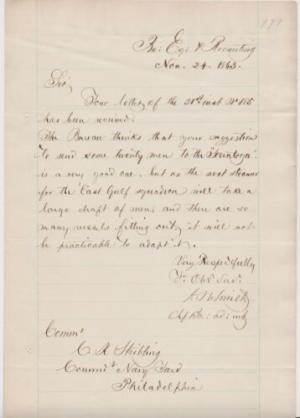 Bu: Eqt & Recruiting
Nov. 24. 1863.
Sir,
Your letter of the 21st inst No 815
has been received.
The Bureau thinks that your suggestion
to send some twenty men to the
is a very good one. but as the next steamer
for the East Gulf squadron will take a
large draft of men, and there are so
many vessels fitting out, it will not
be practicable to adopt it.
Very Respectfully
Yr. Obt. Servt.
A N Smith
Chf Bu: ad: int
Commo
C K Stribling
Commdt Navy Yard
Philadelphia